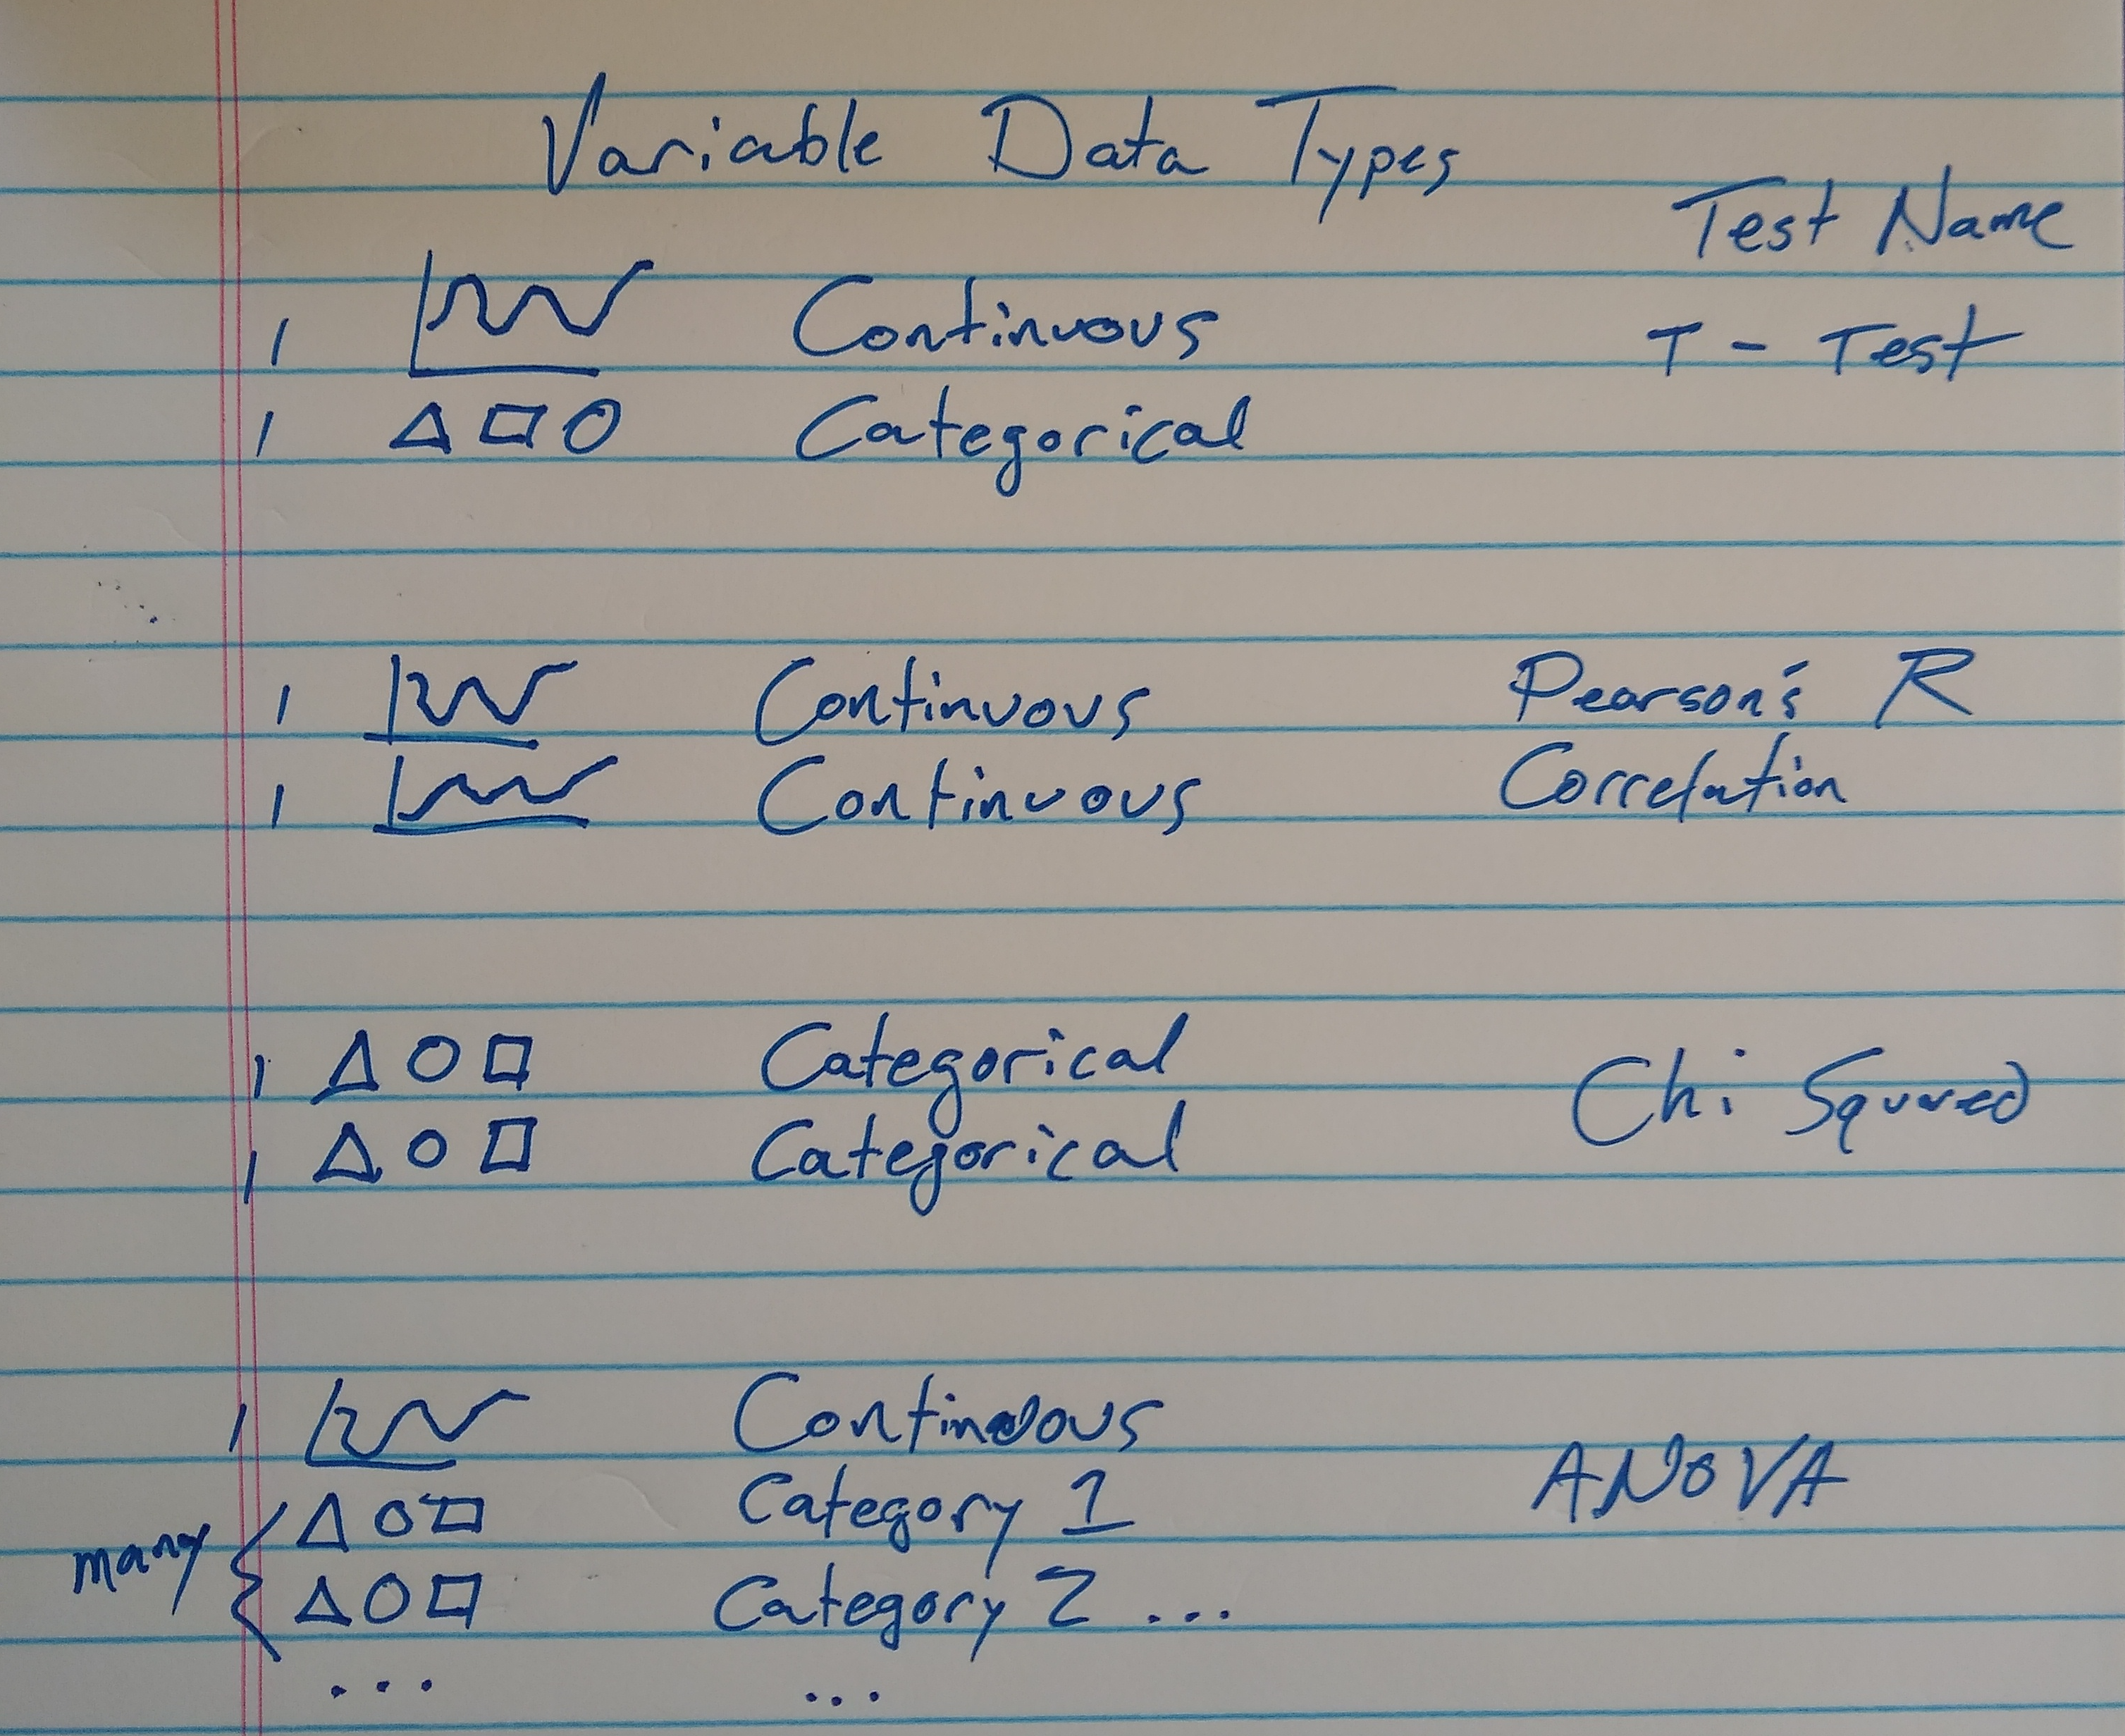 Variable Data Types
Test Name
1 Continuous T - Test
1 Categorical
1 Continuous Pearson's R
1 Continuous Correlation
1 Categorical Chi Squared
1 Categorical
1 Continuous
Category 1 ANOVA
many { Category 2 ...
... ...